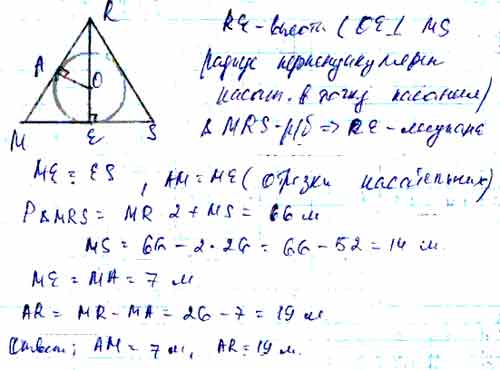 R
A
O
M E S
RE - высота (OE ⊥ MS
радиус перпендикулярен
касат. в точку касания)
Δ MRS - р/б => RE - медиана
ME = ES, AM = ME (отрезки касательных)
PΔMRS = MR 2 + MS = 66 м
MS = 66 - 2 · 26 = 66 - 52 = 14 м.
ME = MA = 7 м
AR = MR - MA = 26 - 7 = 19 м.
Ответ: AM = 7 м, AR = 19 м.